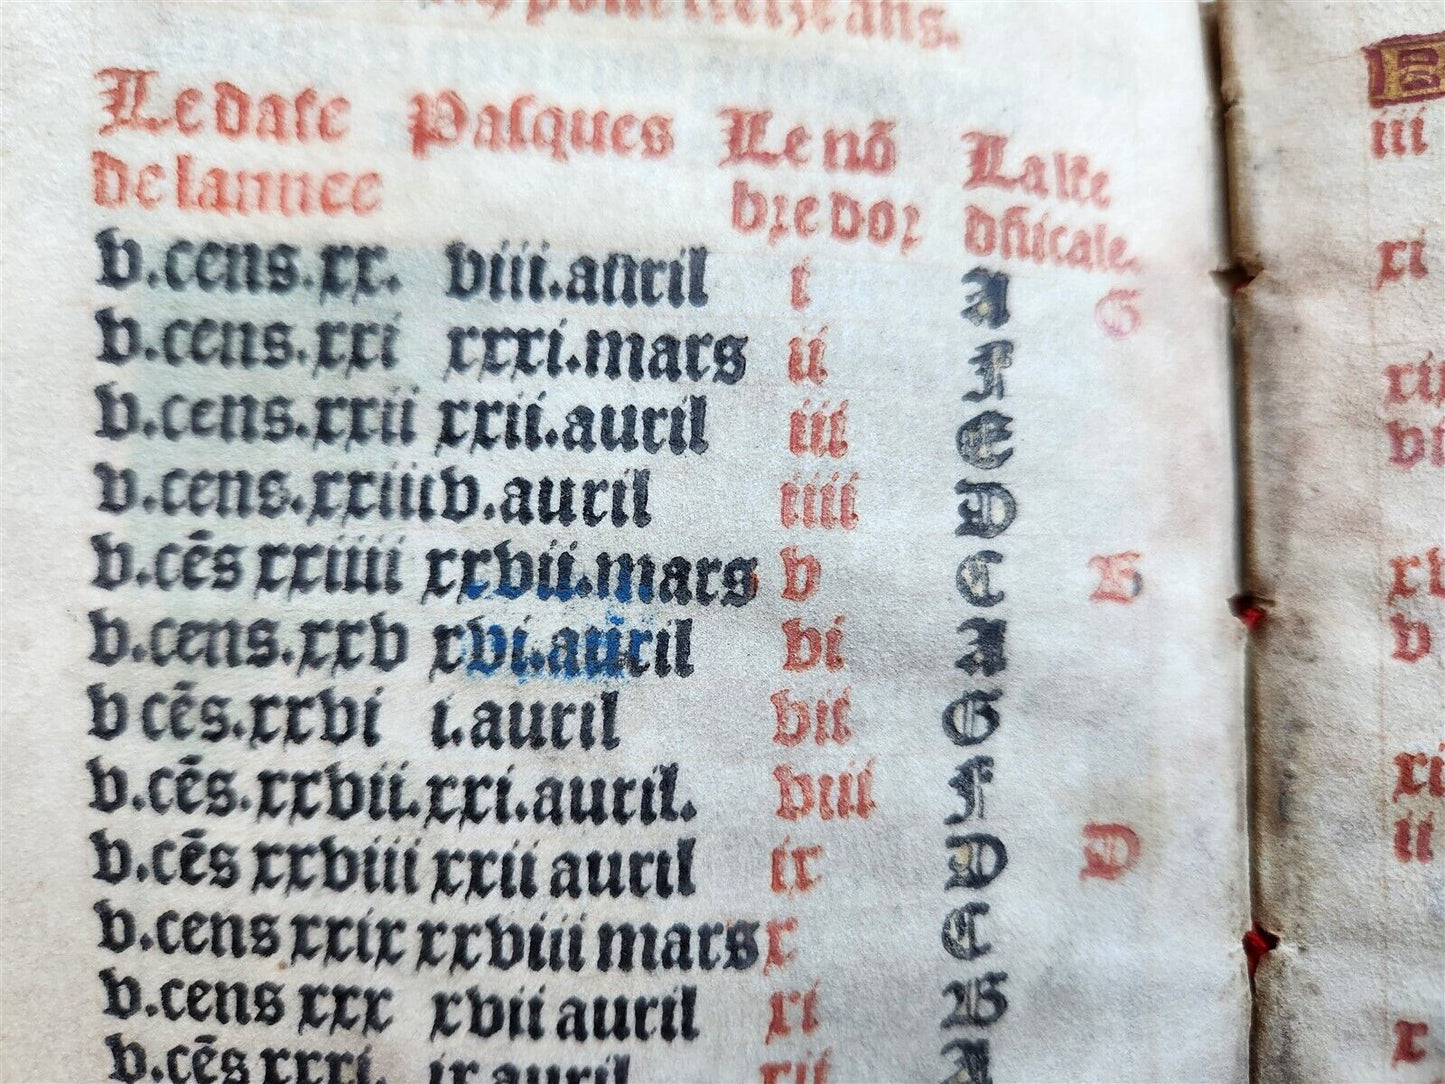 ans.
Le date Pasques Le nō La lre
de lannee bre dor dn̄icale.
v.cens.xx. viii.auril i A G
v.cens.xxi xxxi.mars ii F
v.cens.xxii xxii.auril iii E
v.cens.xxiii v.auril iiii D
v.cēs xxiiii xxvii.mars v C B
v.cens.xxv xvi.auril vi A
v cēs.xxvi i.auril vii G
v.cēs.xxvii.xxi.auril. viii F
v.cēs xxviii xxii auril ix D D
v.cens xxix xxviii mars x C
v.cens xxx xvii auril xi B
v.cēs xxxi. ix auril xii A
iii
xi
vi
v
xi
ii
x